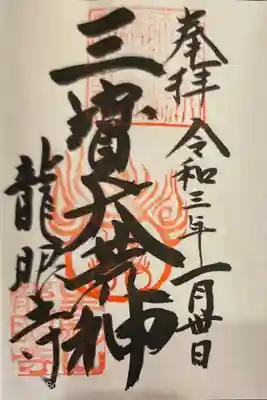 奉拝 令和三年一月卅日
三寳大荒神
龍眼寺